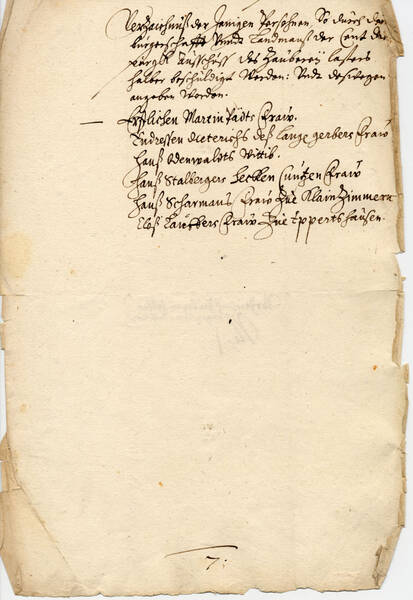 Verzaichnuß der Jenigen Personen, So durch die
bürgerschafft Vnndt Landmanß der Cent
Außschuß des Zauberey lasters
halber beschuldigt Worden: Vndt deßwegen
angeben Worden.
Erstlichen Martin Fraw.
Andressen Dieterichs deß lange gerbers Fraw
Hanß Odenwaldts Wittib.
Hanß Stalbergers Becken Cuntzen Fraw
Hanß Scharmans Fraw Zue Klain Zimmern
Cloß Fraw Zue Eppertshausen.
7: